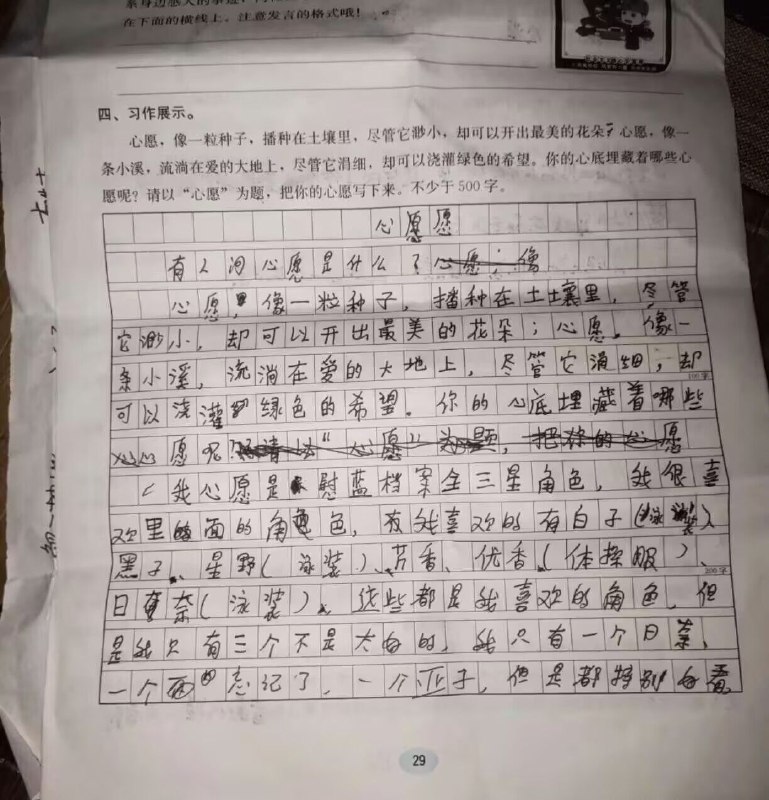 在下面的横线上。注意发言的格式哦！
四、习作展示。
心愿，像一粒种子，播种在土壤里，尽管它渺小，却可以开出最美的花朵；心愿，像一
条小溪，流淌在爱的大地上，尽管它涓细，却可以浇灌绿色的希望。你的心底埋藏着哪些心
愿呢？请以“心愿”为题，把你的心愿写下来。不少于500字。
心愿
有人问心愿是什么？心愿；像
心愿，像一粒种子，播种在土土壤里，尽管
它渺小，却可以开出最美的花朵；心愿，像一
条小溪，流淌在爱的大地上，尽管它涓细，却
100字
可以浇灌绿色的希望。你的心底埋藏着哪些
心愿呢？请以“心愿”为题，把你的心愿
我心愿是蔚蓝档案全三星角色，我很喜
欢里面的角色，有我喜欢的有白子（泳装）
黑子、星野（泳装）、芹香、优香（体操服）、
200字
日奈（泳装）、这些都是我喜欢的角色，但
是我只有三个不是太白的，我只有一个日奈、
一个忘记了，一个亚子，但是都特别
29